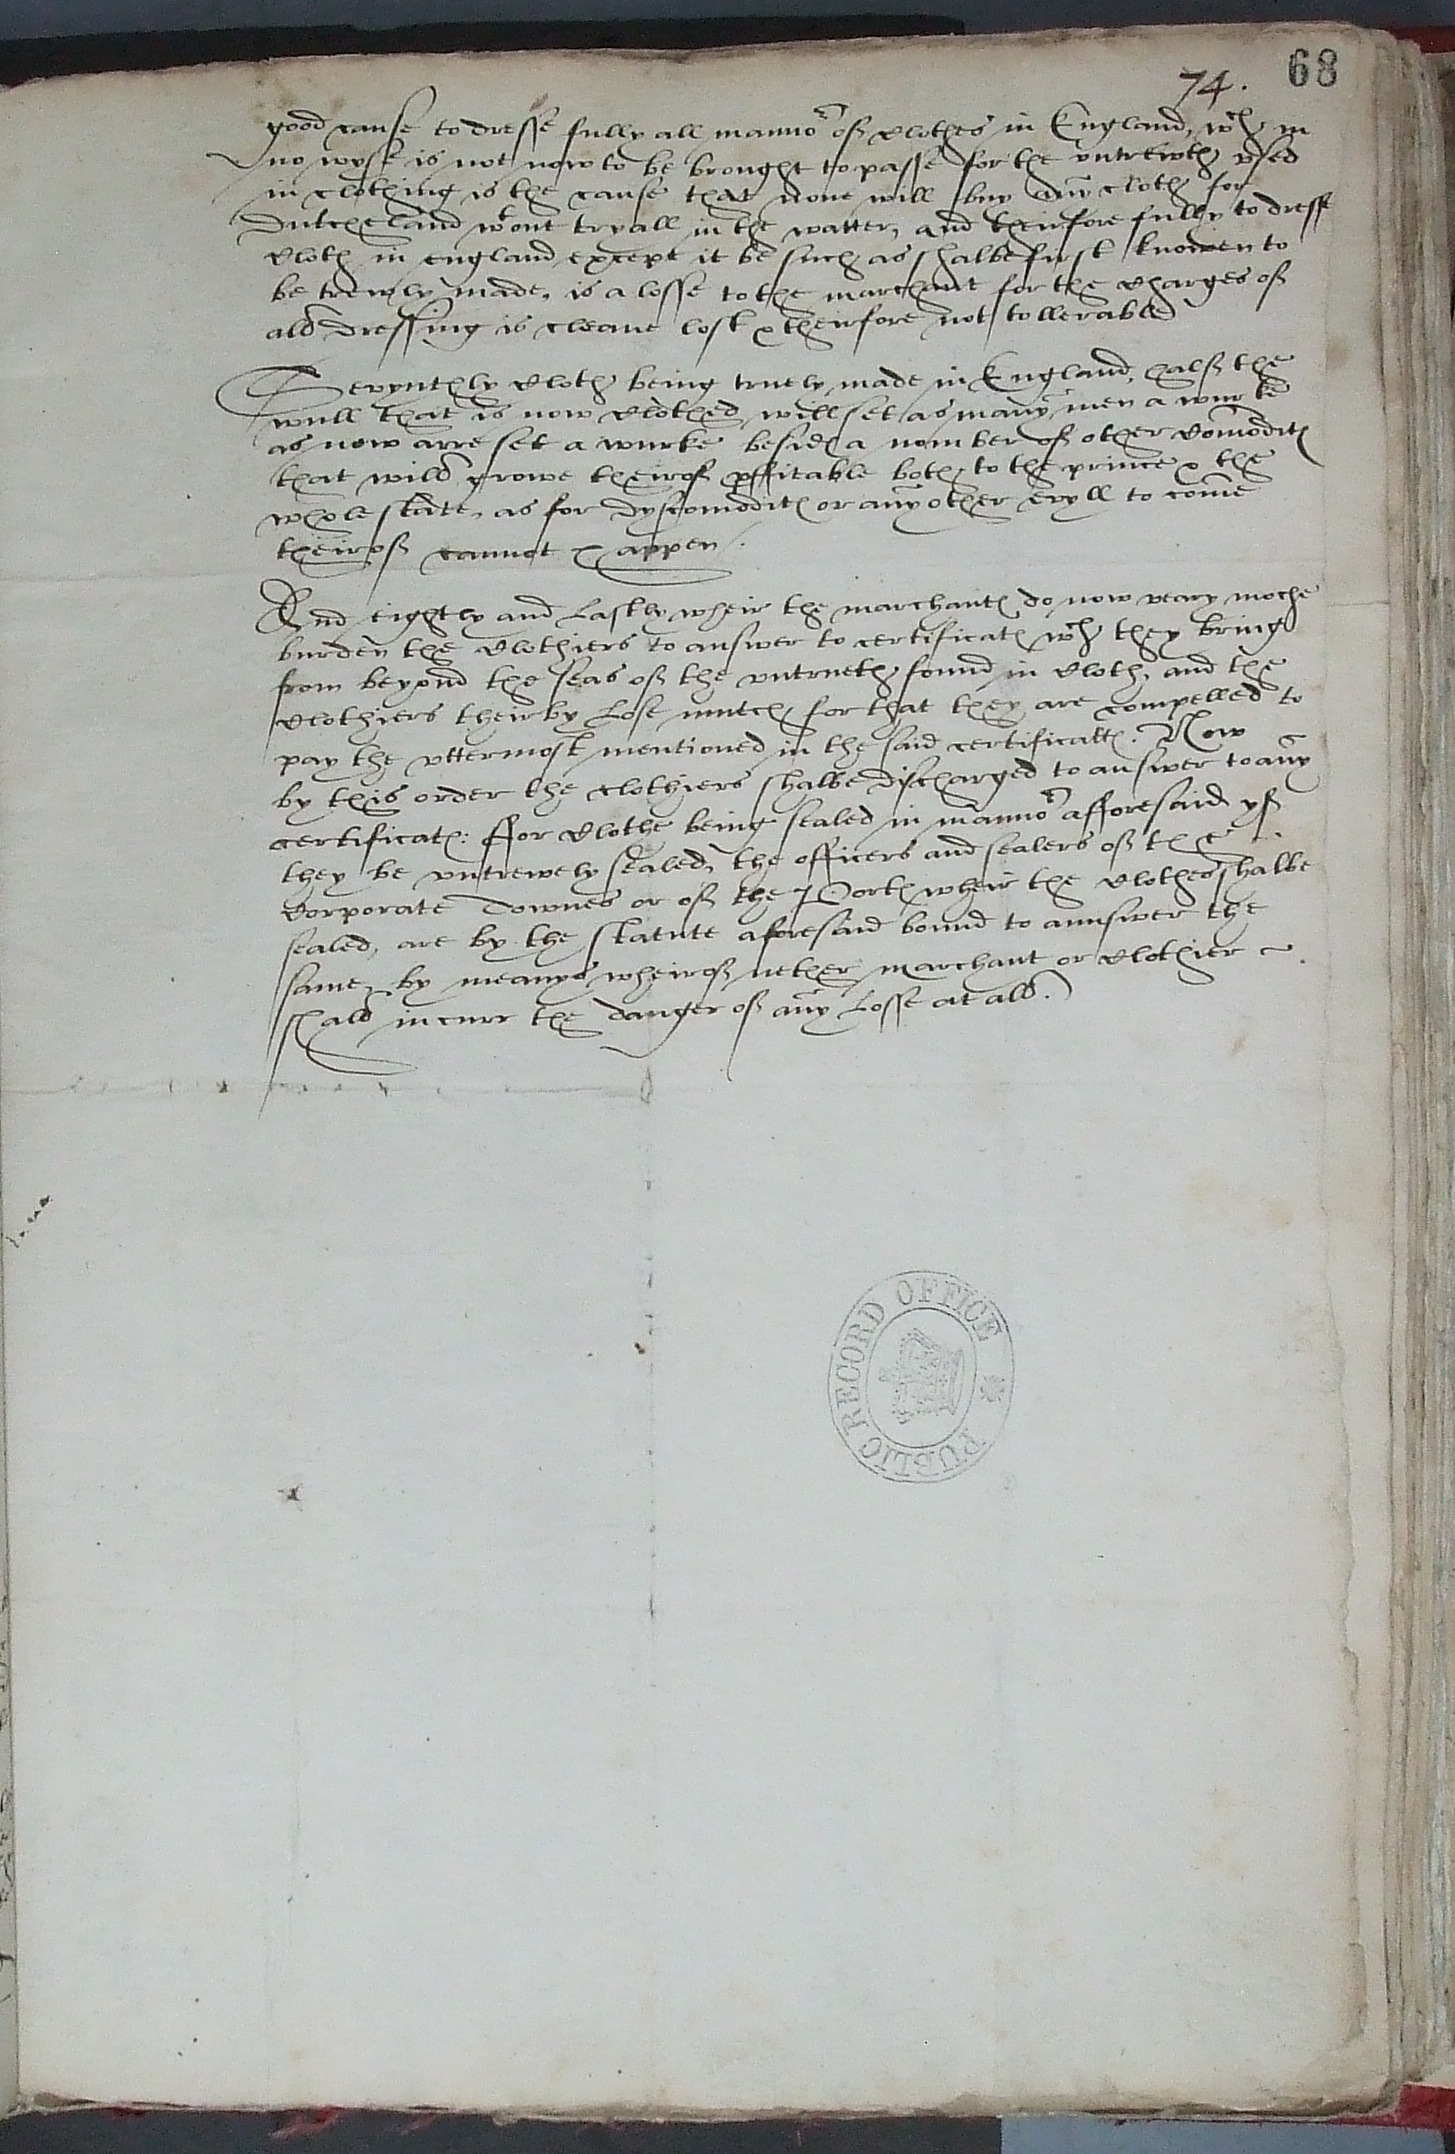 74. 68
good cause to dresse fully all manno^r of Clothes in England, w^ch in
no wyse is not now to be brought to passe for the vntrewth vsed
in clothing is the cause that none will buy any cloth for
Dutcheland w^tout tryall in the watter, and theirfore fully to dresse
Cloth in england except it be such as shalbe first knowen to
be trewly made, is a losse to the marchant for the Charges of
all dressing is cleane lost & theirfore not tollerable
Sevynthly Cloth being truely made in England, half the
wull that is now Clothed will set as many men a wurke
as now arre set a wurke besides a nomber of other Comodites
that will growe theirof proffitable both to the prince & the
whole state, as for dyscomodites or any other evyll to come
theirof cannot happen.
And eightly and Lastly wheir the marchantes do now veary moche
burden the Clothiers to answer to certificates w^ch they bring
from beyond the seas of the vntrueth found in Cloth, and the
Clothiers theirby Lose mutch for that they are compelled to
pay the vttermost mentioned in the said certificattes. Now
by this order the clothiers shalbe discharged to answer to any
certificates: ffor Clothe being sealed in manno^r afforesaid yf
they be vntrewely sealed, the officers and sealers of the
Corporate Townes or of the Portes wheir the Clothes shalbe
sealed, are by the statute aforesaid bound to aunswer the
same, by meanys wheirof nether marchant or Clothier
shall incurr the danger of any Losse at all.
PUBLIC RECORD OFFICE